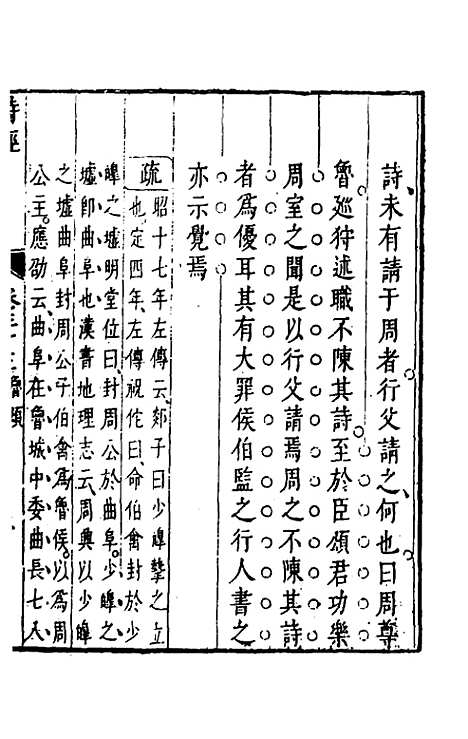 詩未有請于周者行父請之何也曰周尊
魯巡狩述職不陳其詩至於臣頌君功樂
周室之聞是以行父請焉周之不陳其詩
者爲優耳其有大罪侯伯監之行人書之
亦示覺焉
疏昭十七年左傳云郯子曰少皥摯之立
也定四年左傳祝佗曰命伯禽封於少
皥之墟明堂位曰封周公於曲阜少皥之
墟即曲阜也漢書地理志云周興以少皥
之墟曲阜封周公子伯禽爲魯侯以爲周
公主應劭云曲阜在魯城中委曲長七八
詩經 魯頌